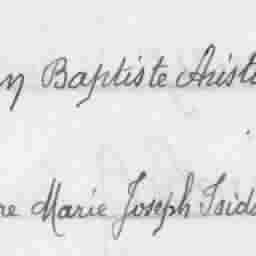 n Baptiste Arist
re Marie Joseph Isid